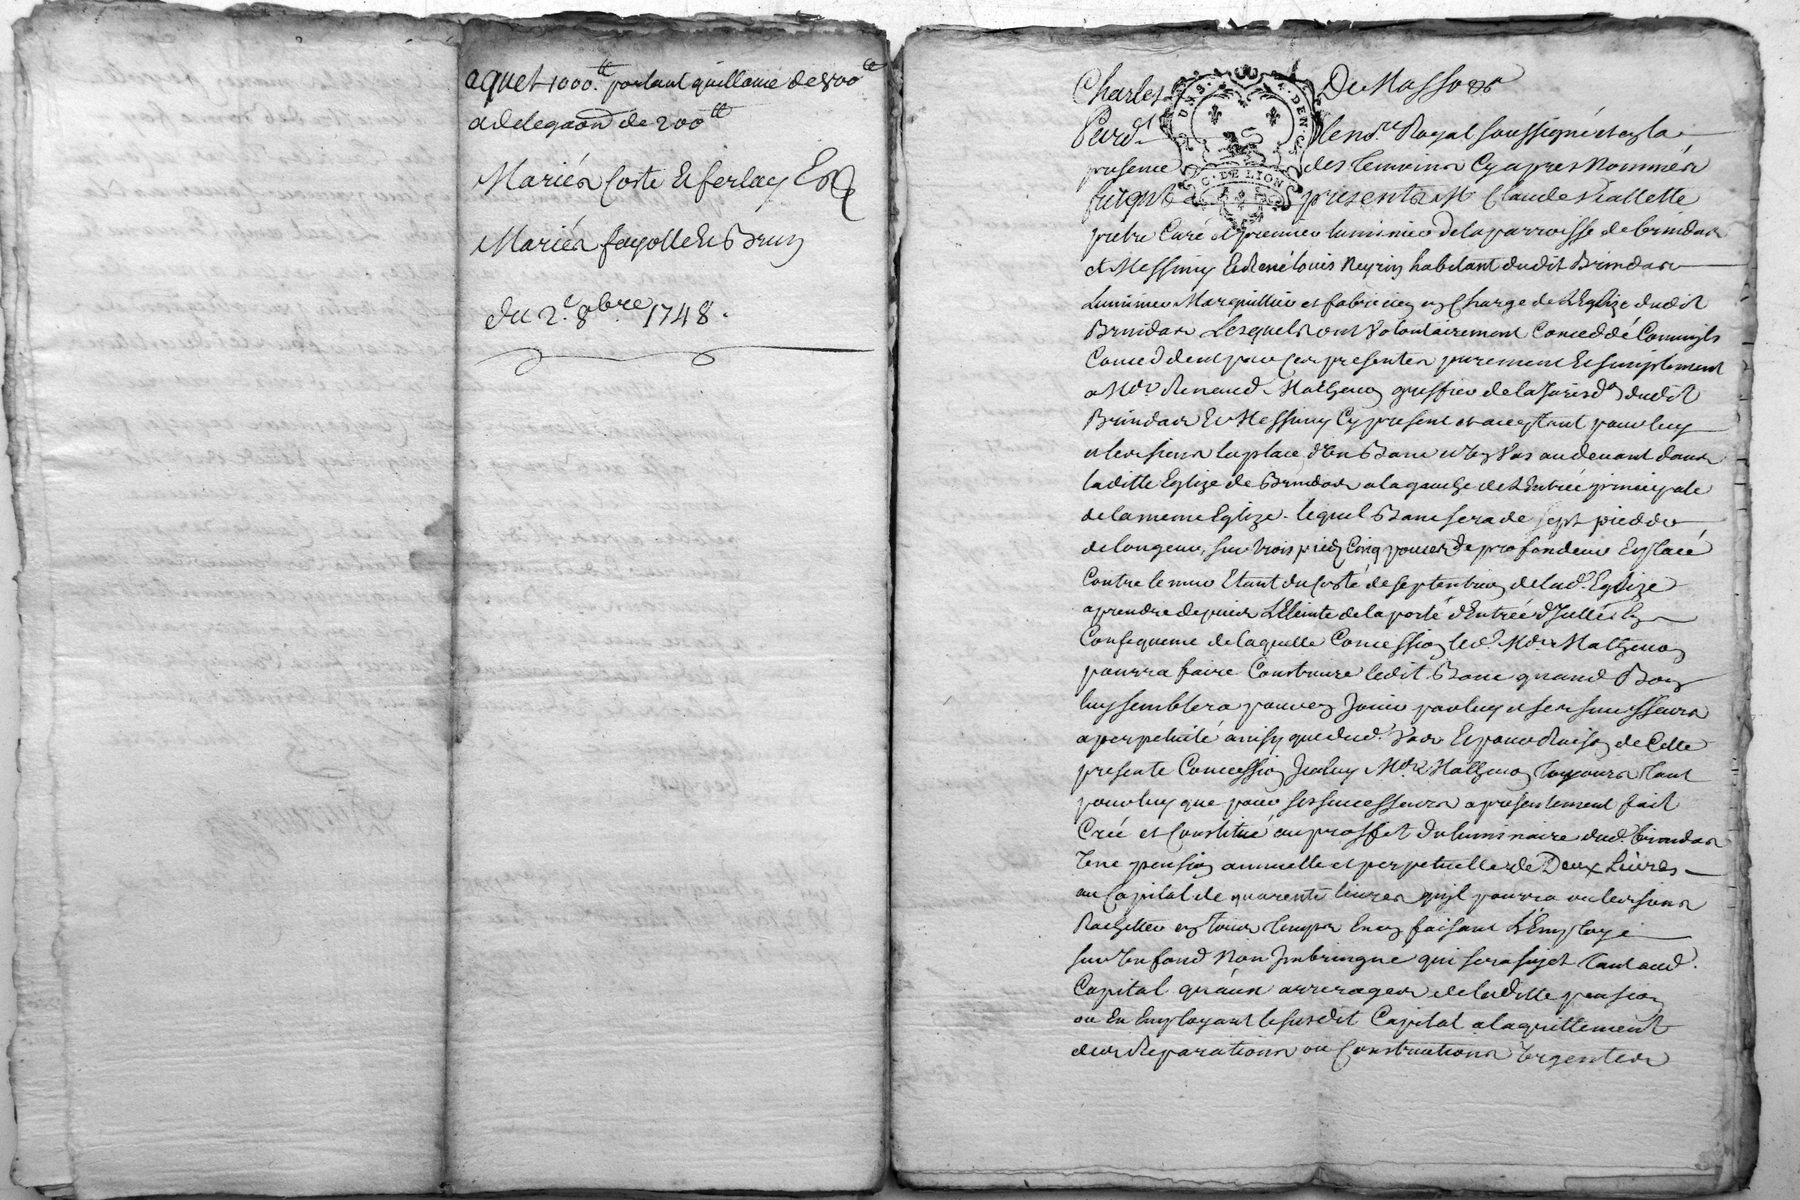 aquet 1000.tt portant quillance de 800tt
a delegaon de 200tt
Mariés Coste & ferlay
Mariés fayolle & Brun
du 2.e 8bre 1748.
Charles De Masso &a
Pard.t le no.re Royal soussigné et en la
presence des temoins cy apres nommés
furent presents M.e Claude Viallette
pretre Curé et premier luminier de la parroisse de brindas
et Messimy & René Louis Neyrin habitant dudit Brindas
Luminier Marguillier et fabricien en Charge de L'Eglize dudit
Brindas Lesquels ont volontairement Conceddé Comm'ils
Conceddent par ces presentes purement & simplement
a Me. Renaud Mathenon greffier de la Jurisd.on dudit
Brindas & Messimy Cy present et acceptant pour luy
et les siens la place d'un Banc et en Vas au devant dans
laditte Eglize de Brindas a la gauche de L'Entrée principale
de la meme Eglize. lequel Banc sera de sept pieds de
de longeur, sur trois pieds Cinq pouces de profondeur & placé
Contre le mur Etant du Costé de septentrion de lad. Eglize
a prendre depuis de la porte d'Entrée d'Icelle En
Consequence de laquelle Concession led. Me. Mathenon
pourra faire Construire ledit Banc quand Bon
luy semblera pour en Jouir par luy et ses successeurs
a perpetuité ainsy que dud. Vas & pour Raison de Cette
presente Concession Iceluy Me. Mathenon toujours tant
pour luy que pour ses successeurs a presentement fait
Créé et Constitué au proffit du luminaire dud. brindas
Une pension annuelle et perpetuelle de Deux Livres
au Capital de quarente livres qu'il pourra ou les siens
Rachetter en tous temps En en faisant L'Employ
sur un fond Non Imbringué qui sera sujet tant aud.
Capital qu'aux arrerages de laditte pension
ou En Employant le susdit Capital a laquittement
des Reparations ou Constructions Urgentes